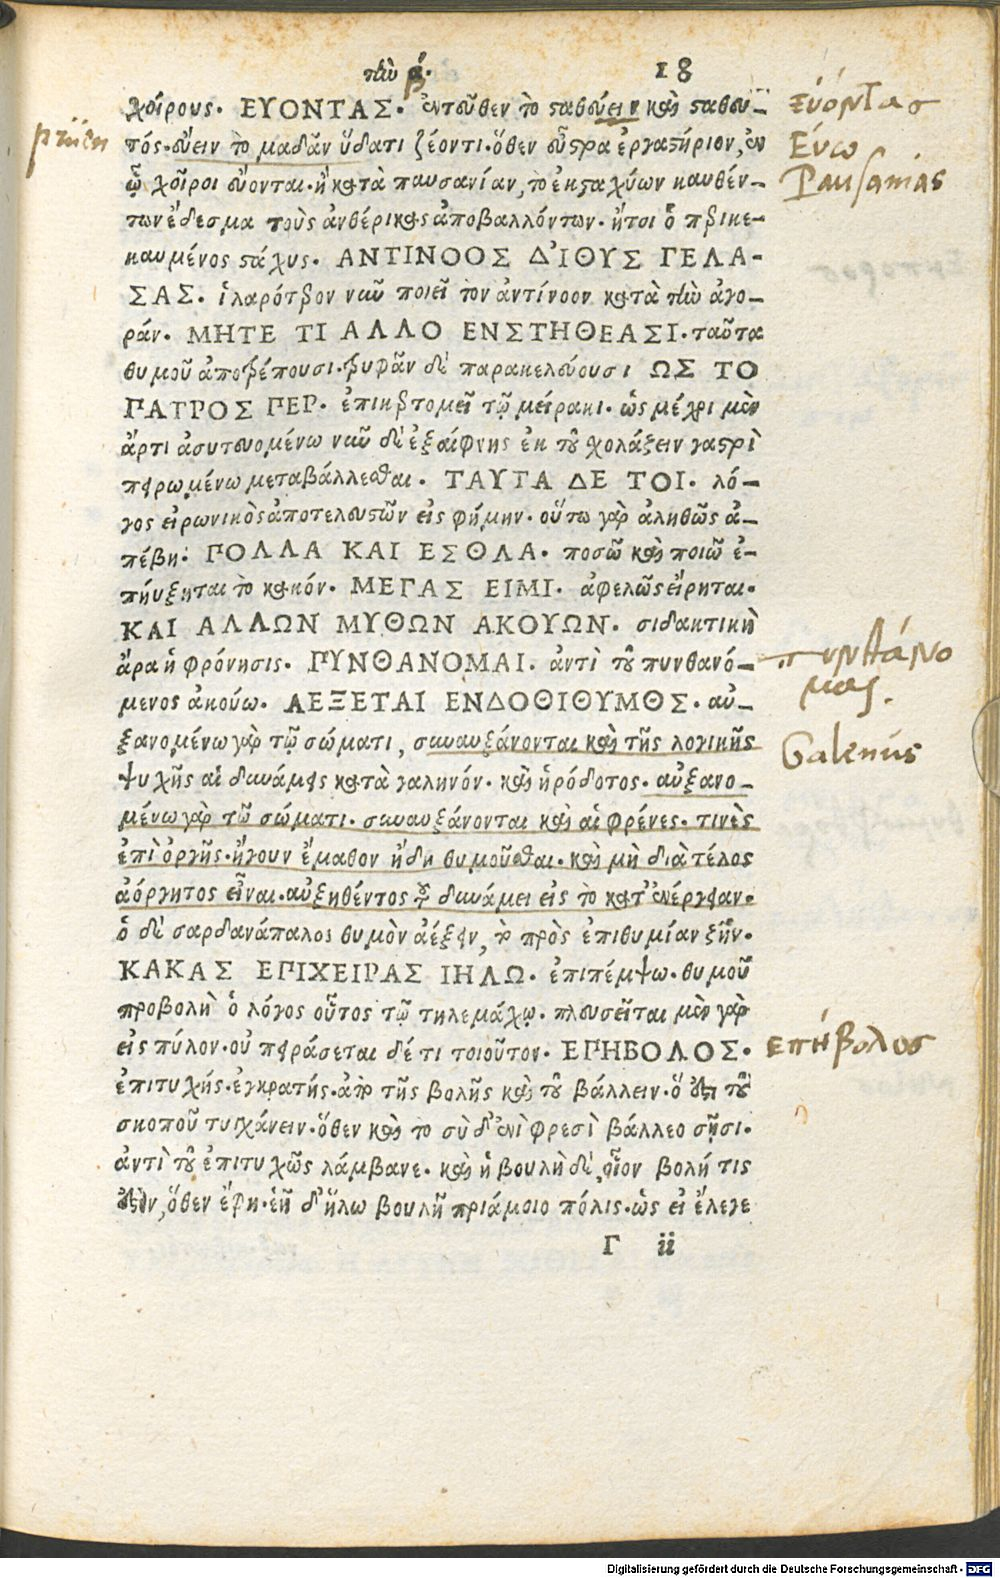 τὴν ά. 18
χοίρους. ΕΥΟΝΤΑΣ. ἐντεῦθεν τὸ σταθεύειν καὶ σταθευ-
τός. εὕειν τὸ μαδᾶν ὕδατι ζέοντι. ὅθεν εὖστρα ἐργαστήριον, ἐν
ᾧ χοῖροι εὕονται. ἢ κατὰ παυσανίαν, τὸ ἐκ σταχύων καυθέν-
των ἔδεσμα τοὺς ἀνθέρικας ἀποβαλλόντων. ἤτοι ὁ περικε-
καυμένος στάχυς. ΑΝΤΙΝΟΟΣ Δ'ΙΘΥΣ ΓΕΛΑ-
ΣΑΣ. ἱλαρότερον νῦν ποιεῖ τὸν ἀντίνοον κατὰ τὴν ἀγο-
ράν. ΜΗΤΕ ΤΙ ΑΛΛΟ ΕΝΣΤΗΘΕΑΣΙ. ταῦτα
θυμοῦ ἀποτρέπουσι. τρυφᾶν δὲ παρακελεύουσι ΩΣ ΤΟ
ΠΑΤΡΟΣ ΠΕΡ. ἐπικερτομεῖ τῷ μείρακι. ὡς μέχρι μὲν
ἄρτι ἀσωτευομένω νῦν δὲ ἐξαίφνης ἐκ τοῦ χολάζειν γαστρὶ
πειρωμένω μεταβάλλεσθαι. ΤΑΥΤΑ ΔΕ ΤΟΙ. λό-
γος εἰρωνικὸς ἀποτελευτῶν εἰς φήμην. οὕτω γὰρ ἀληθῶς ἀ-
πέβη. ΠΟΛΛΑ ΚΑΙ ΕΣΘΛΑ. ποσῶ καὶ ποιῶ ἐ-
πήυξηται τὸ κακόν. ΜΕΓΑΣ ΕΙΜΙ. ἀφελῶς εἴρηται.
ΚΑΙ ΑΛΛΩΝ ΜΥΘΩΝ ΑΚΟΥΩΝ. σιδακτικὴ
ἄρα ἡ φρόνησις. ΠΥΝΘΑΝΟΜΑΙ. ἀντὶ τοῦ πυνθανό-
μενος ἀκούω. ΑΕΞΕΤΑΙ ΕΝΔΟΘΙΘΥΜΟΣ. αὐ-
ξανομένω γὰρ τῷ σώματι, συναυξάνονται καὶ τῆς λογικῆς
ψυχῆς αἱ δυνάμεις κατὰ γαληνόν. καὶ ἡρόδοτος. αὐξανο-
μένω γὰρ τῶ σώματι. συναυξάνονται καὶ αἱ φρένες. τινὲς
ἐπὶ ὀργῆς. ἤγουν ἔμαθον ἤδη θυμοῦσθαι. καὶ μὴ διὰ τέλος
ἀόργητος εἶναι. αὐξηθέντος τοῦ δυνάμει εἰς τὸ κατ' ἐνέργειαν.
ὁ δὲ σαρδανάπαλος θυμὸν ἀέξειν, τὸ πρὸς ἐπιθυμίαν ζῆν.
ΚΑΚΑΣ ΕΠΙΧΕΙΡΑΣ ΙΗΛΩ. ἐπιπέμψω. θυμοῦ
προβολὴ ὁ λόγος οὗτος τῷ τηλεμάχῳ. πλευσεῖται μὲν γὰρ
εἰς πύλον. οὐ πειράσεται δέ τι τοιοῦτον. ΕΠΗΒΟΛΟΣ.
ἐπιτυχής. ἐγκρατής. ἀπὸ τῆς βολῆς καὶ τοῦ βάλλειν. ὅ ἐστι τοῦ
σκοποῦ τυγχάνειν. ὅθεν καὶ το σὺ δ' ἐνὶ φρεσὶ βάλλεο σῇσι.
ἀντὶ τοῦ ἐπιτυχῶς λάμβανε. καὶ ἡ βουλὴ δὲ, οἷον βολή τις
ἐστὶν, ὅθεν ἔφη. ἑῇ δ' ἥλω βουλῇ πριάμοιο πόλις. ὡς εἰ ἔλεγε
Γ ii
ευόντας
Εύω
Pausanias
πυνθάνο
μαι.
Galenus
επήβολος
Digitalisierung gefördert durch die Deutsche Forschungsgemeinschaft - DFG